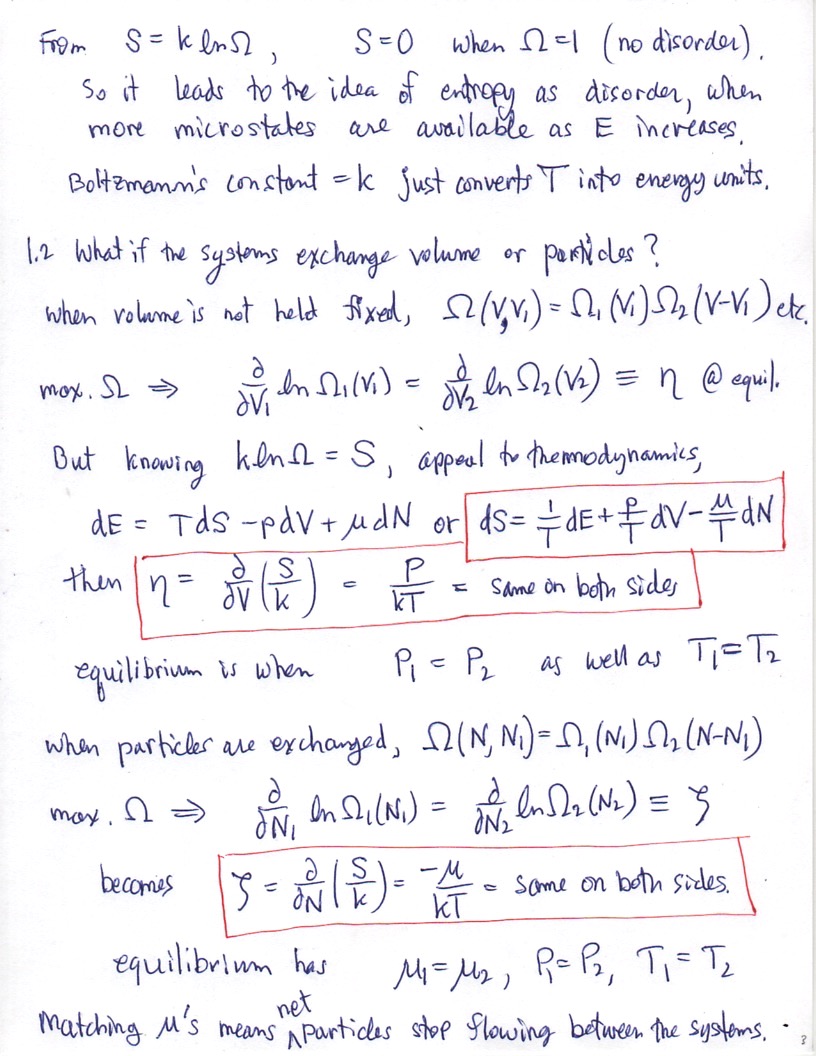 From S = k ln Ω, S=0 when Ω=1 (no disorder).
So it leads to the idea of entropy as disorder, when
more microstates are available as E increases.
Boltzmann's constant = k just converts T into energy units.
1.2 What if the systems exchange volume or particles?
When volume is not held fixed, Ω(V,V₁) = Ω₁(V₁)Ω₂(V-V₁) etc.
max. Ω ⇒ ∂/∂V₁ ln Ω₁(V₁) = ∂/∂V₂ ln Ω₂(V₂) ≡ η @ equil.
But knowing k ln Ω = S, appeal to thermodynamics,
dE = TdS - pdV + μdN or dS = 1/T dE + P/T dV - μ/T dN
then η = ∂/∂V (S/k) = P/kT = same on both sides
equilibrium is when P₁ = P₂ as well as T₁ = T₂
When particles are exchanged, Ω(N,N₁) = Ω₁(N₁)Ω₂(N-N₁)
max. Ω ⇒ ∂/∂N₁ ln Ω₁(N₁) = ∂/∂N₂ ln Ω₂(N₂) ≡ ζ
becomes ζ = ∂/∂N (S/k) = -μ/kT = same on both sides.
equilibrium has μ₁=μ₂, P₁=P₂, T₁=T₂
Matching μ's means net particles stop flowing between the systems.
3